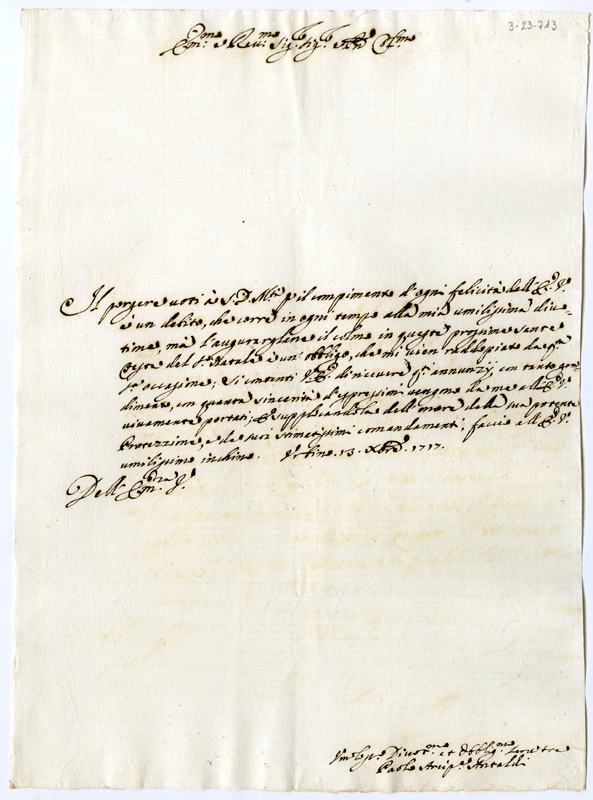 3-23-713
Em.mo e Rev.mo Sig.r Sig.r
Il porgere voti à S. D. M.tà p il compimento d'ogni felicità dell'E. V.
è un debito, che corre in ogni tempo alla mia umilissima divo-
tione, mà l'augurargliene il colmo in queste prossime sante
Feste del S. Natale è un' obbligo, che mi vien raddopiato da q.
st' occasione; Si contenti V. E. di ricevere q.i annunzj con tanto gra-
dimento, con quanta sincerità d'espressioni vengono da me all'E. V.
vivamente portati; E supplicandola dell'onore della sua potente
Protezzione, e de suoi stimatissimi comandamenti, faccio all'E. V.
umilissimo inchino. Urbino 13. Xbre 1717.
Dell' Em.za V.
Um.o Divot.mo et Obblig.mo Servitore
Paolo Antaldi